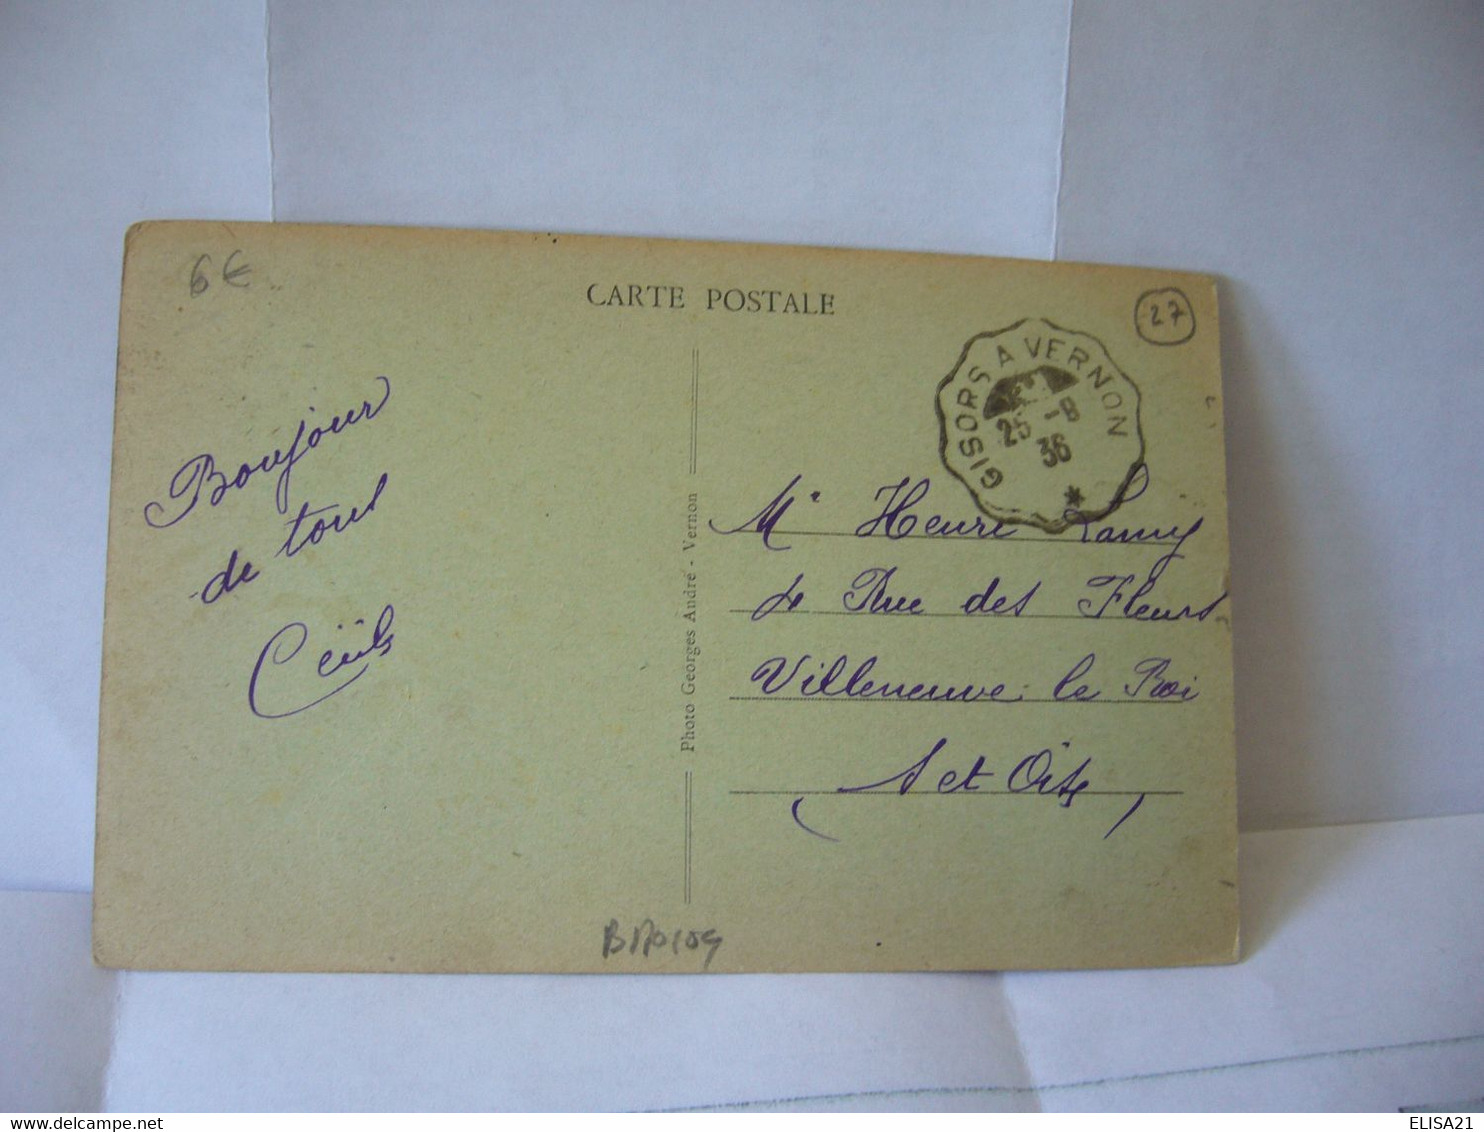 6€
CARTE POSTALE
27
GISORS A VERNON
25 -8
36
*
Bonjour
de tous
Photo Georges André - Vernon
Mr Henri Lamy
4 Rue des Fleurs
Villeneuve le Roi
(S et Oise)
delcampe.net
ELISA21